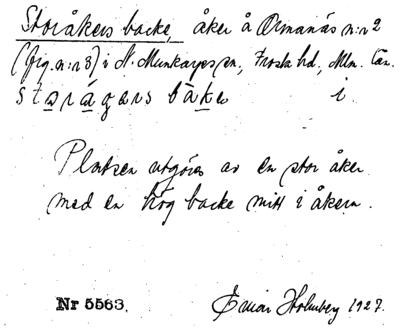 Storåkers backe, åker å Ormanäs n:r 2
(fig. n:r 3) i N. Munkarps sn, Frosta hd, Mlm. län.
storågars bake i.
Platsen utgöres av en stor åker
med en hög backe mitt i åkern.
Nr 5563. Einar Holmberg 1927.